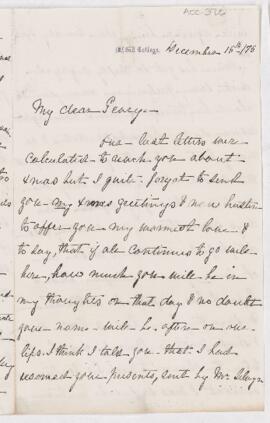 ACC-326
McGill College.
December 15th/76
My dear Percy-
Our last letters were
calculated to reach you about
Xmas but I quite forgot to send
you my Xmas greetings & now hasten
to offer you my warmest love &
to say, that if all continues to go well
here, how much you will be in
my thoughts on that day & no doubt
your name will be often on our
lips. I think I told you that I had
received your presents, sent by Mr. Selwyn